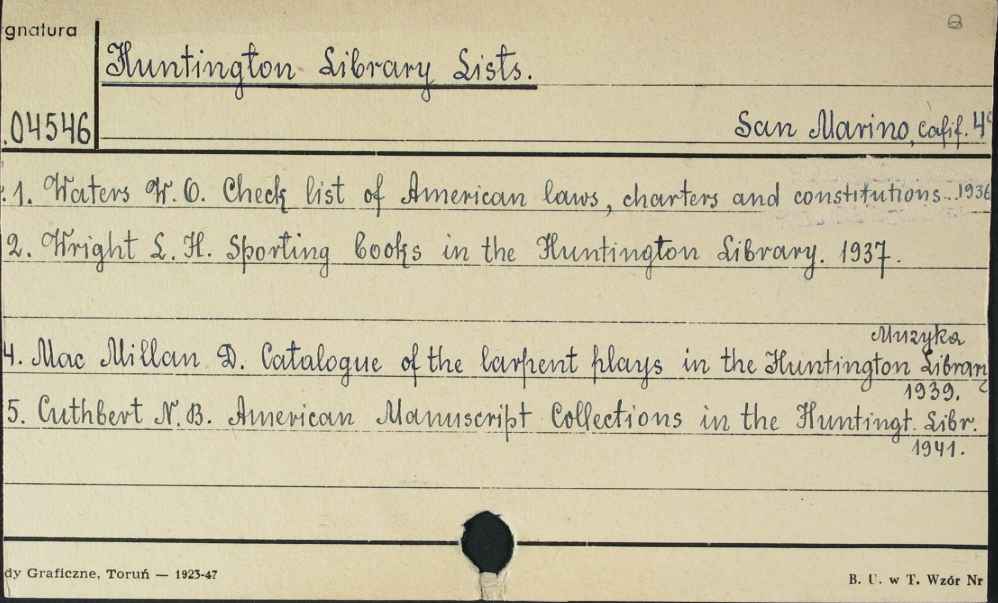 gnatura
Huntington Library Lists.
.04546
San Marino, Calif. 4°
1. Waters W. O. Check list of American laws, charters and constitutions.. 1936
2. Wright L. H. Sporting books in the Huntington Library. 1937.
Muzyka
4. Mac Millan D. Catalogue of the larpent plays in the Huntington Library
1939.
5. Cuthbert N. B. American Manuscript Collections in the Huntingt. Libr.
1941.
dy Graficzne, Toruń — 1923-47
B. U. w T. Wzór Nr